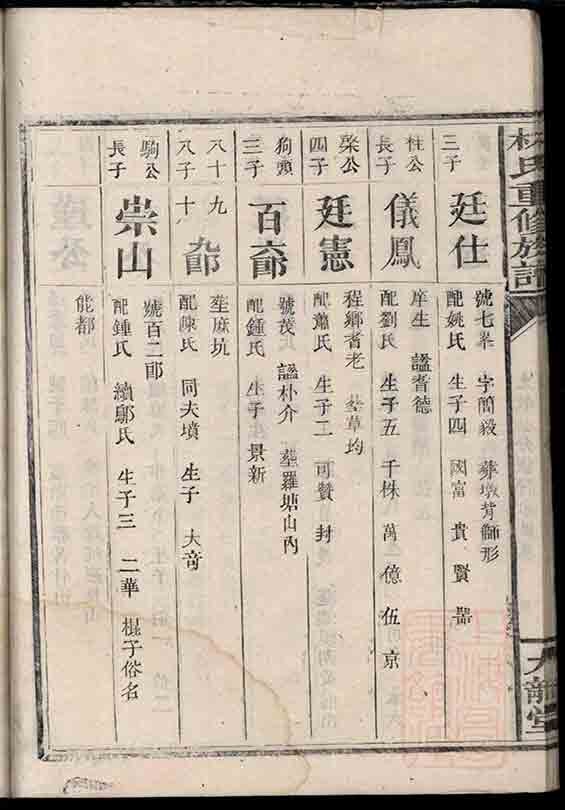 林氏重修族譜
九龍堂
三子
廷仕
號七峯 字簡毅 葬墩背獅形
配姚氏 生子四 國富 貴 賢 器
柱公
長子
儀鳳
庠生 謚耆德
配劉氏 生子五 千株 萬 億 伍 京
榮公
四子
廷憲
程鄉耆老 塟草坋
配蕭氏 生子二 可贊 封
狗頭
三子
百六郎
號茂氏 謚朴介 塟羅塘山內
配鍾氏 生子 景新
八十九
八子十
郎
塟麻坑
配陳氏 同夫墳 生子 大奇
駒公
長子
崇山
號百二郎
配鍾氏 續鄔氏 生子三 二華 棍子俗名
能都